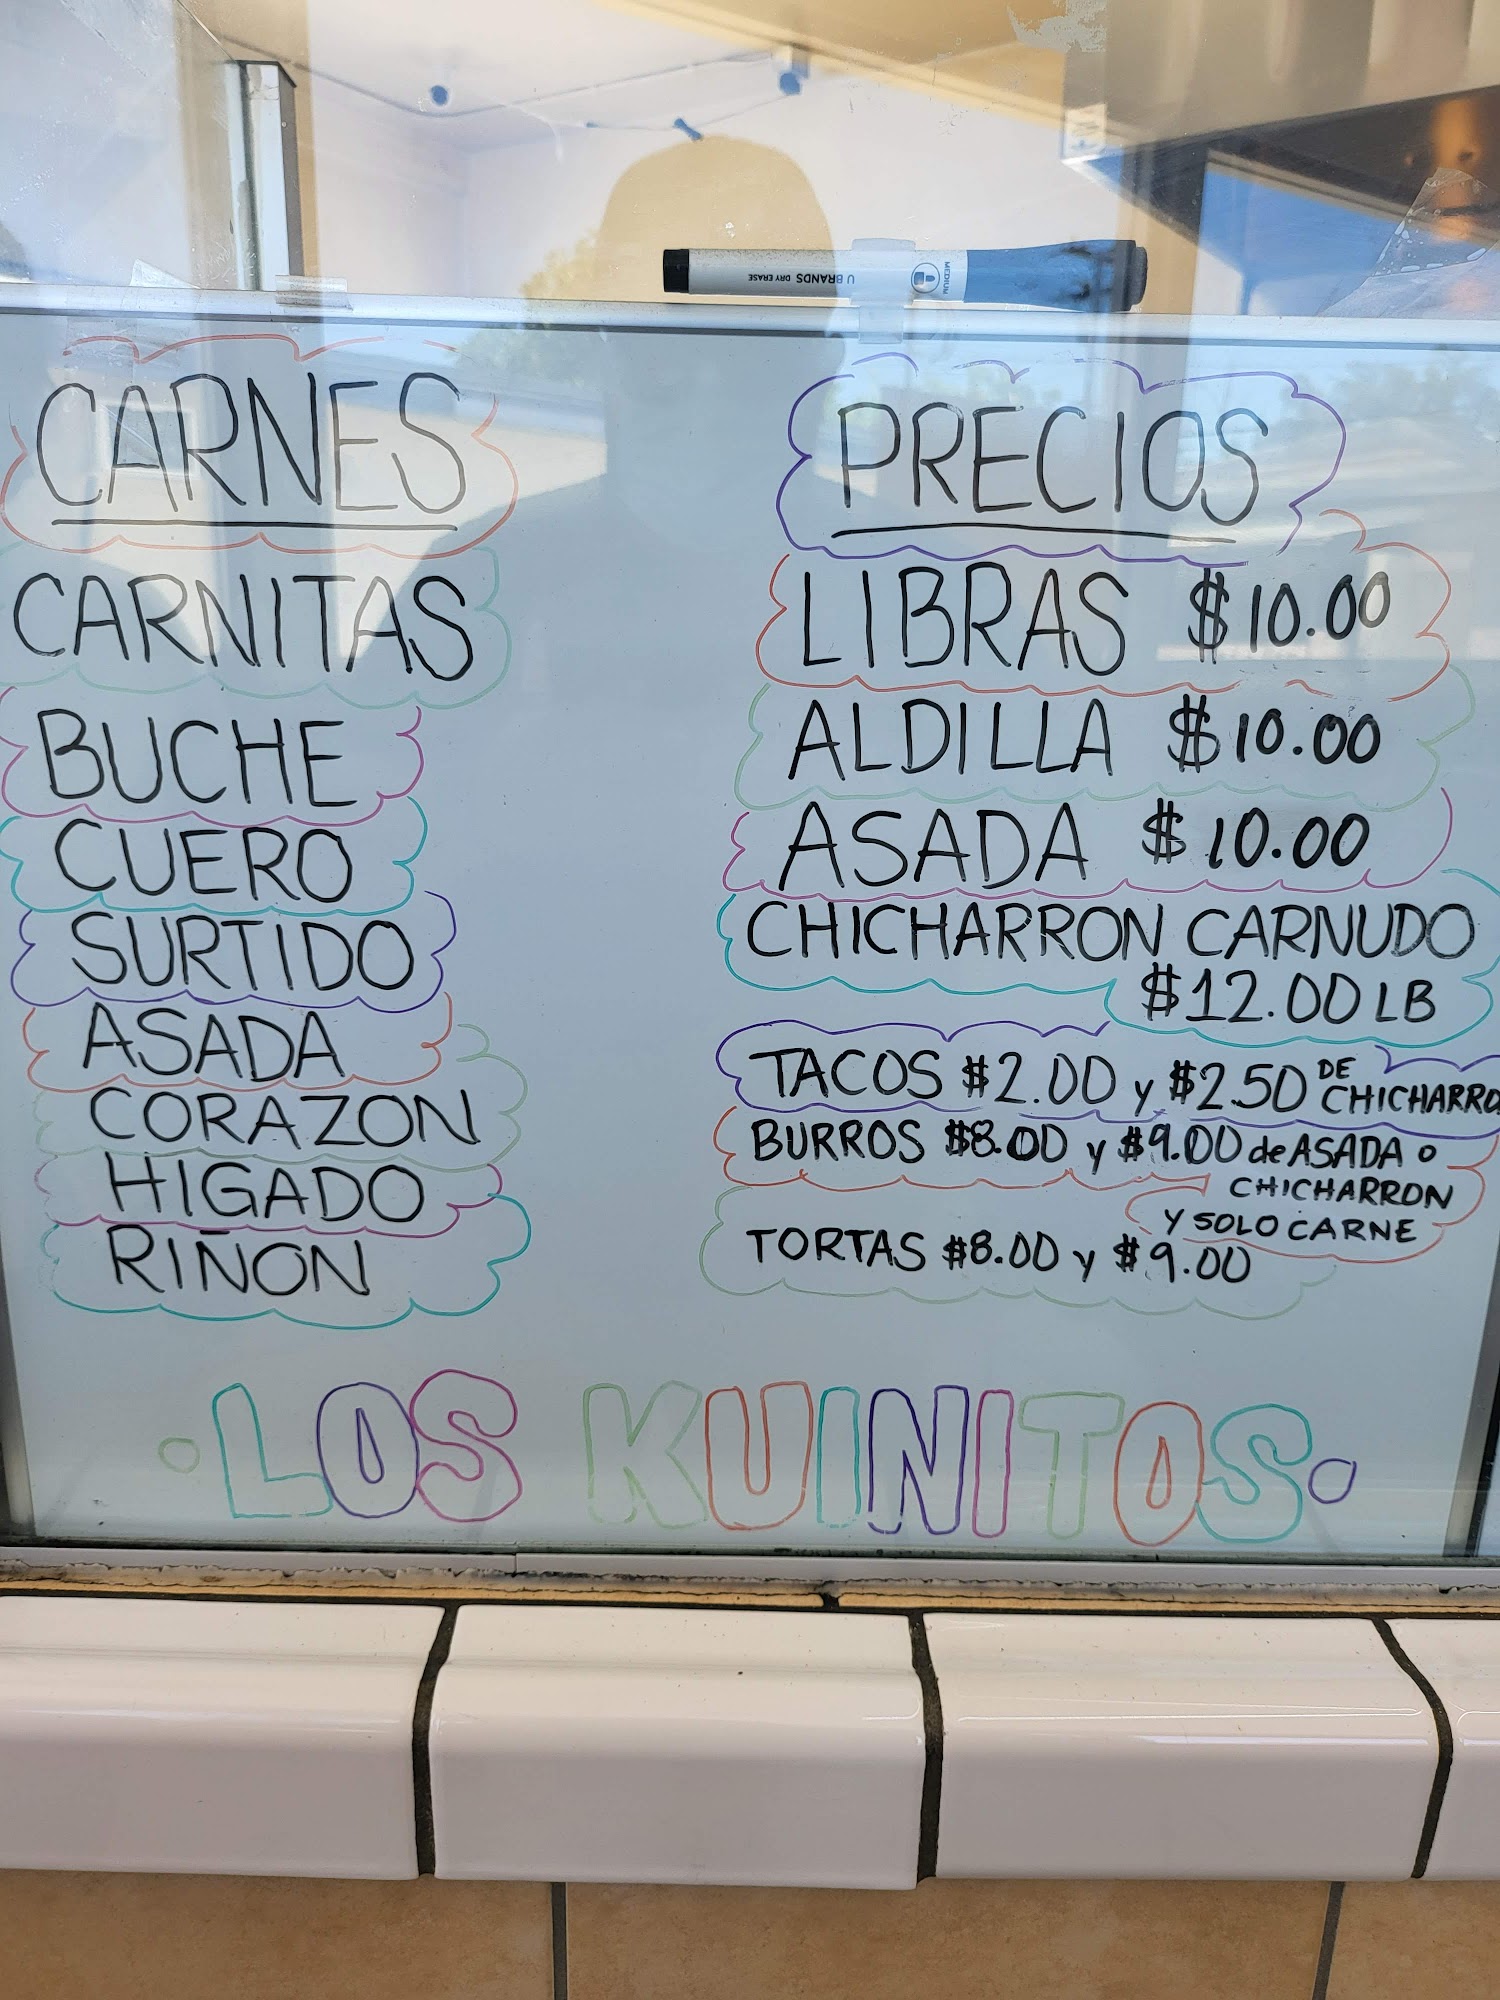 U BRANDS DRY ERASE
MEDIUM
CARNES
CARNITAS
BUCHE
CUERO
SURTIDO
ASADA
CORAZON
HIGADO
RIÑON
PRECIOS
LIBRAS $10.00
ALDILLA $10.00
ASADA $10.00
CHICHARRON CARNUDO
$12.00 LB
TACOS $2.00 y $2.50 DE
CHICHARRO
BURROS $8.00 y $9.00 de ASADA o
CHICHARRON
Y SOLO CARNE
TORTAS $8.00 y $9.00
•LOS KUINITOS•